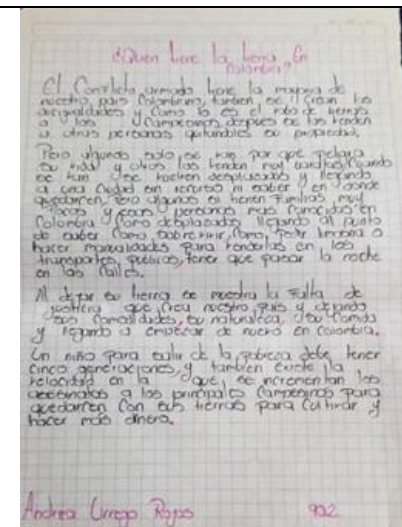 ¿Quien tiene la tierra En
Colombia?
El Conflicto armado tiene la mayoria de
nuestro pais Colombiano, tambien se crean las
desigualdades y como lo es el robo de tierras
a los campesinos, despues se las venden
a otras personas quitandoles su propiedad.
Pero algunos solo se van por que peligra
su vida y otros las venden muy cuando
se van se vuelven desplazados y llegando
a una ciudad sin recursos ni saber en donde
quedarsen, pero algunos si tienen familias muy
pocos y esas personas mas conocidas en
Colombia como desplazados llegando al punto
de saber como sobrevivir, como, pedir limosna o
hacer manualidades para venderlas en los
transportes publicos, tener que pasar la noche
en las calles.
Al dejar su tierra se muestra la falta de
justicia que crea nuestro pais y dejando
sus comodidades, su naturaleza, su comida
y llegando a empezar de nuevo en Colombia.
Un niño para salir de la pobreza debe tener
cinco generaciones, y tambien existe la
velocidad en la que se incrementan los
asesinatos a los principales campesinos para
quedarsen con sus tierras para cultivar y
hacer más dinero.
Andrea Urrego Rojas 902